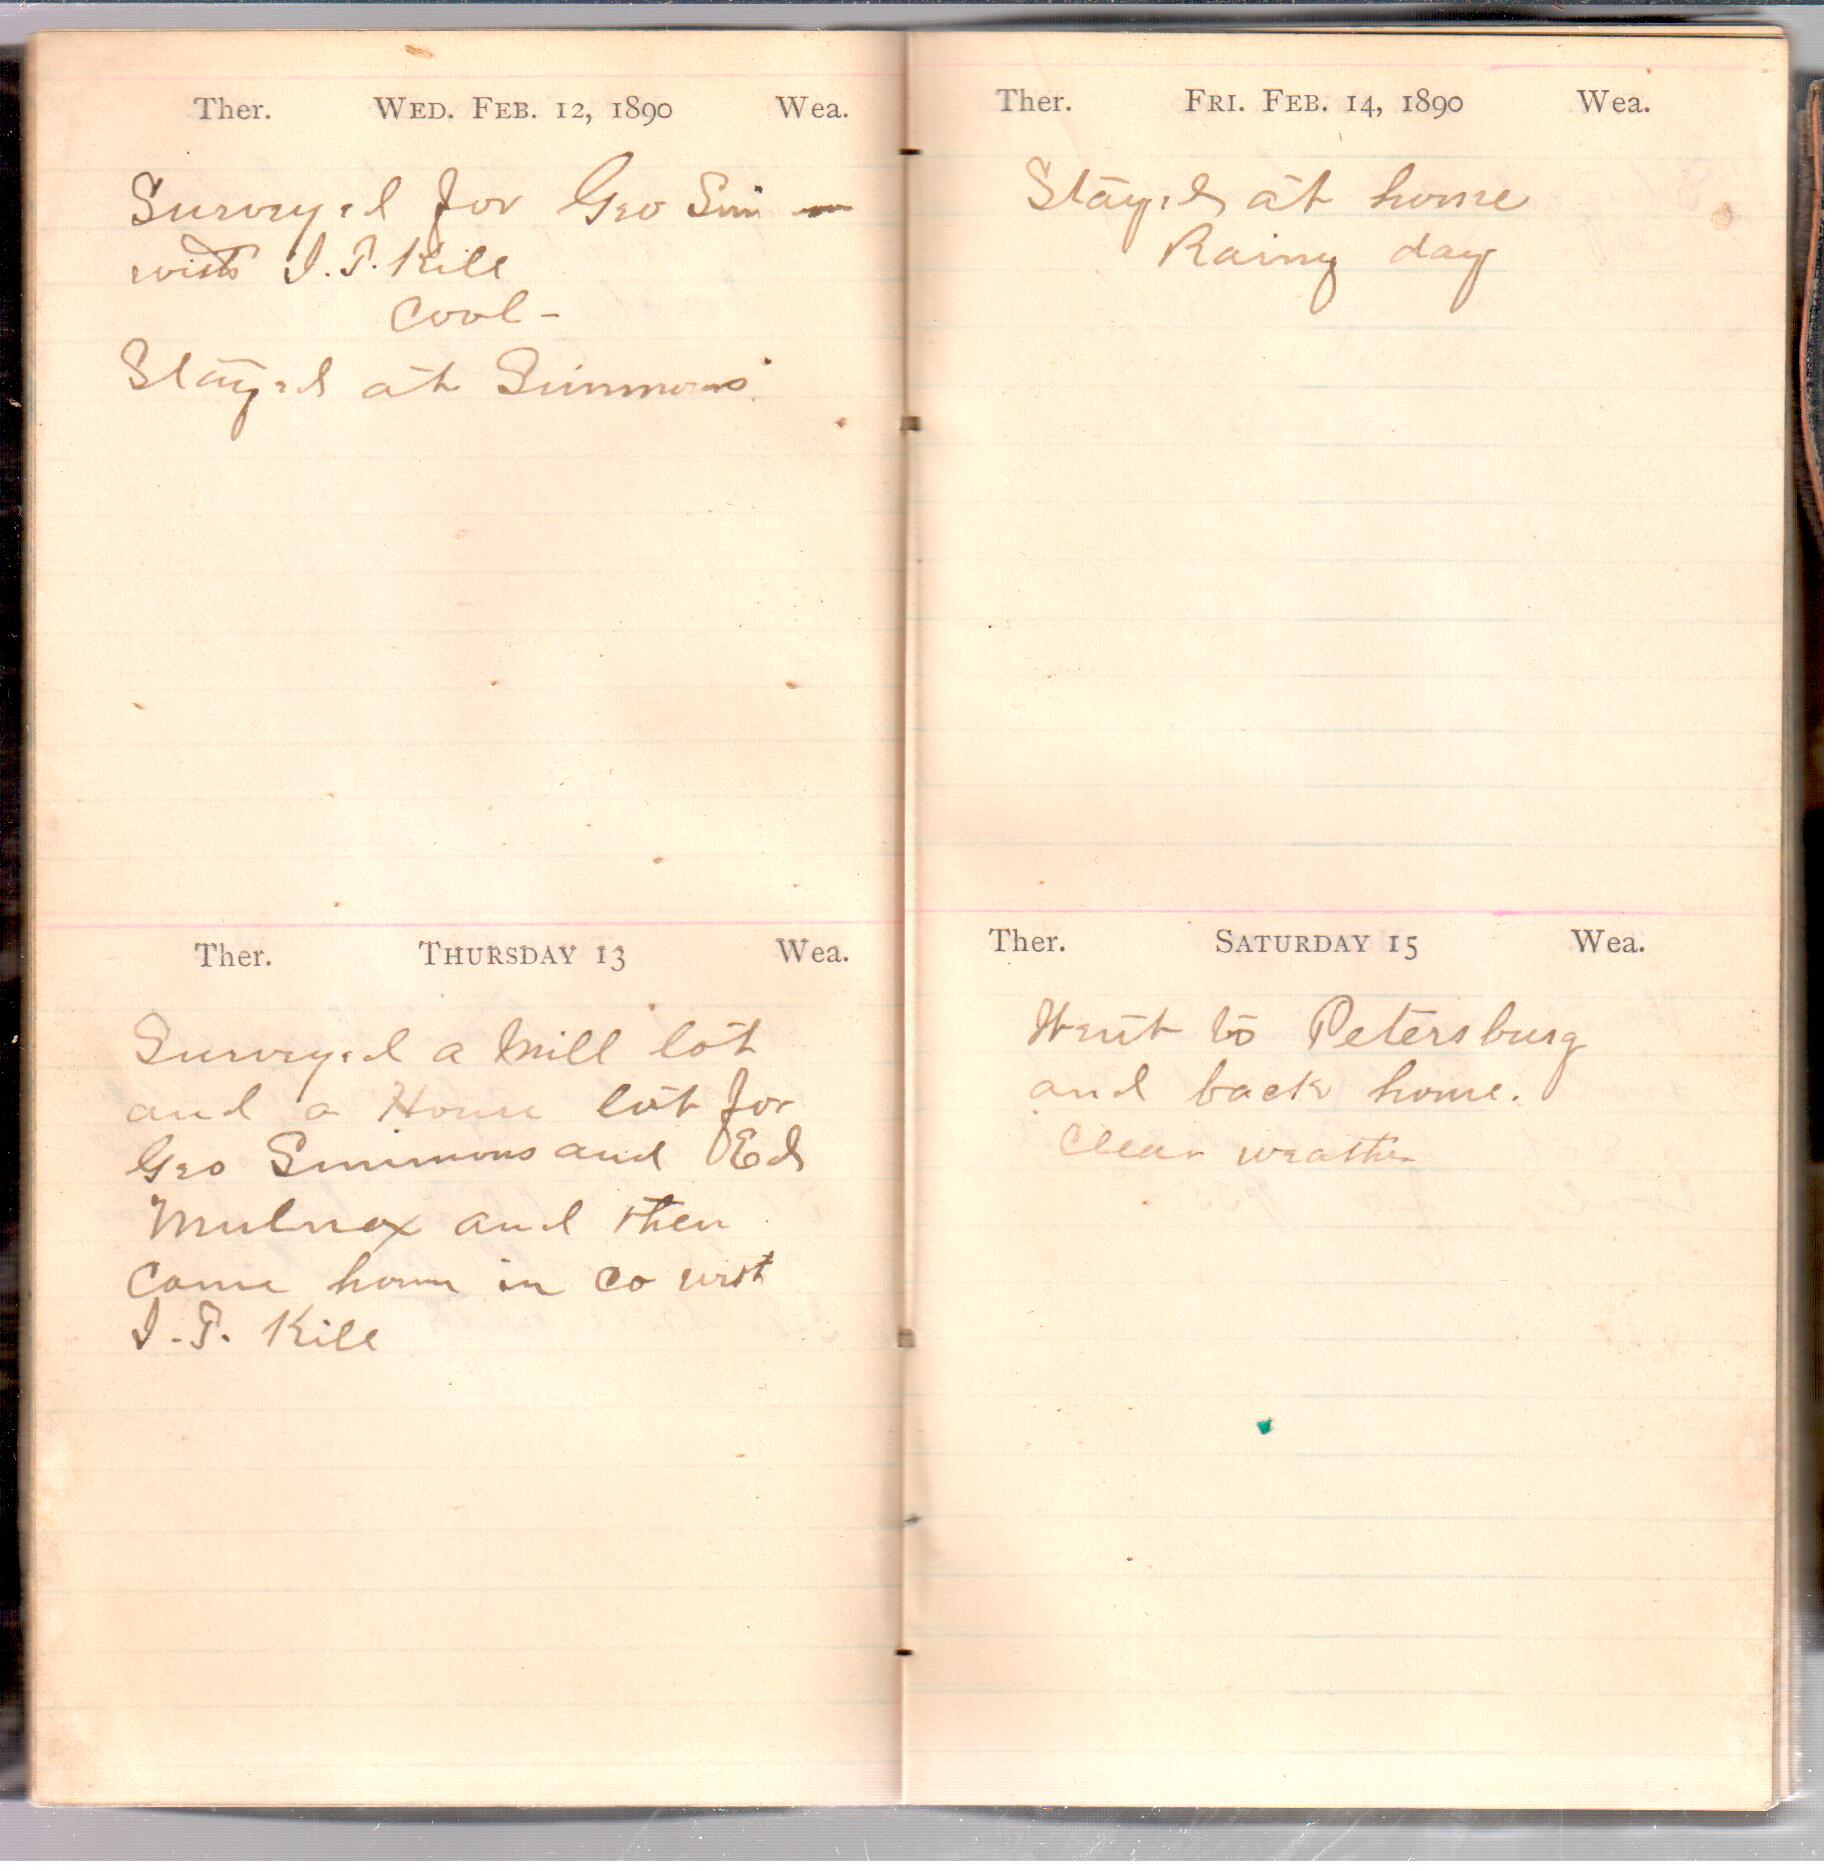 Ther. WED. FEB. 12, 1890 Wea.
Surveyed for Geo Sim
with I. T. Kile
Cool -
Stayed at Simmons'
Ther. THURSDAY 13 Wea.
Surveyed a Mill lot
and a House lot for
Geo Simmons and Ed
Mulnox and then
Came home in co with
I. T. Kile
Ther. FRI. FEB. 14, 1890 Wea.
Stayed at home
Rainy day
Ther. SATURDAY 15 Wea.
Went to Petersburg
and back home.
Clear weather